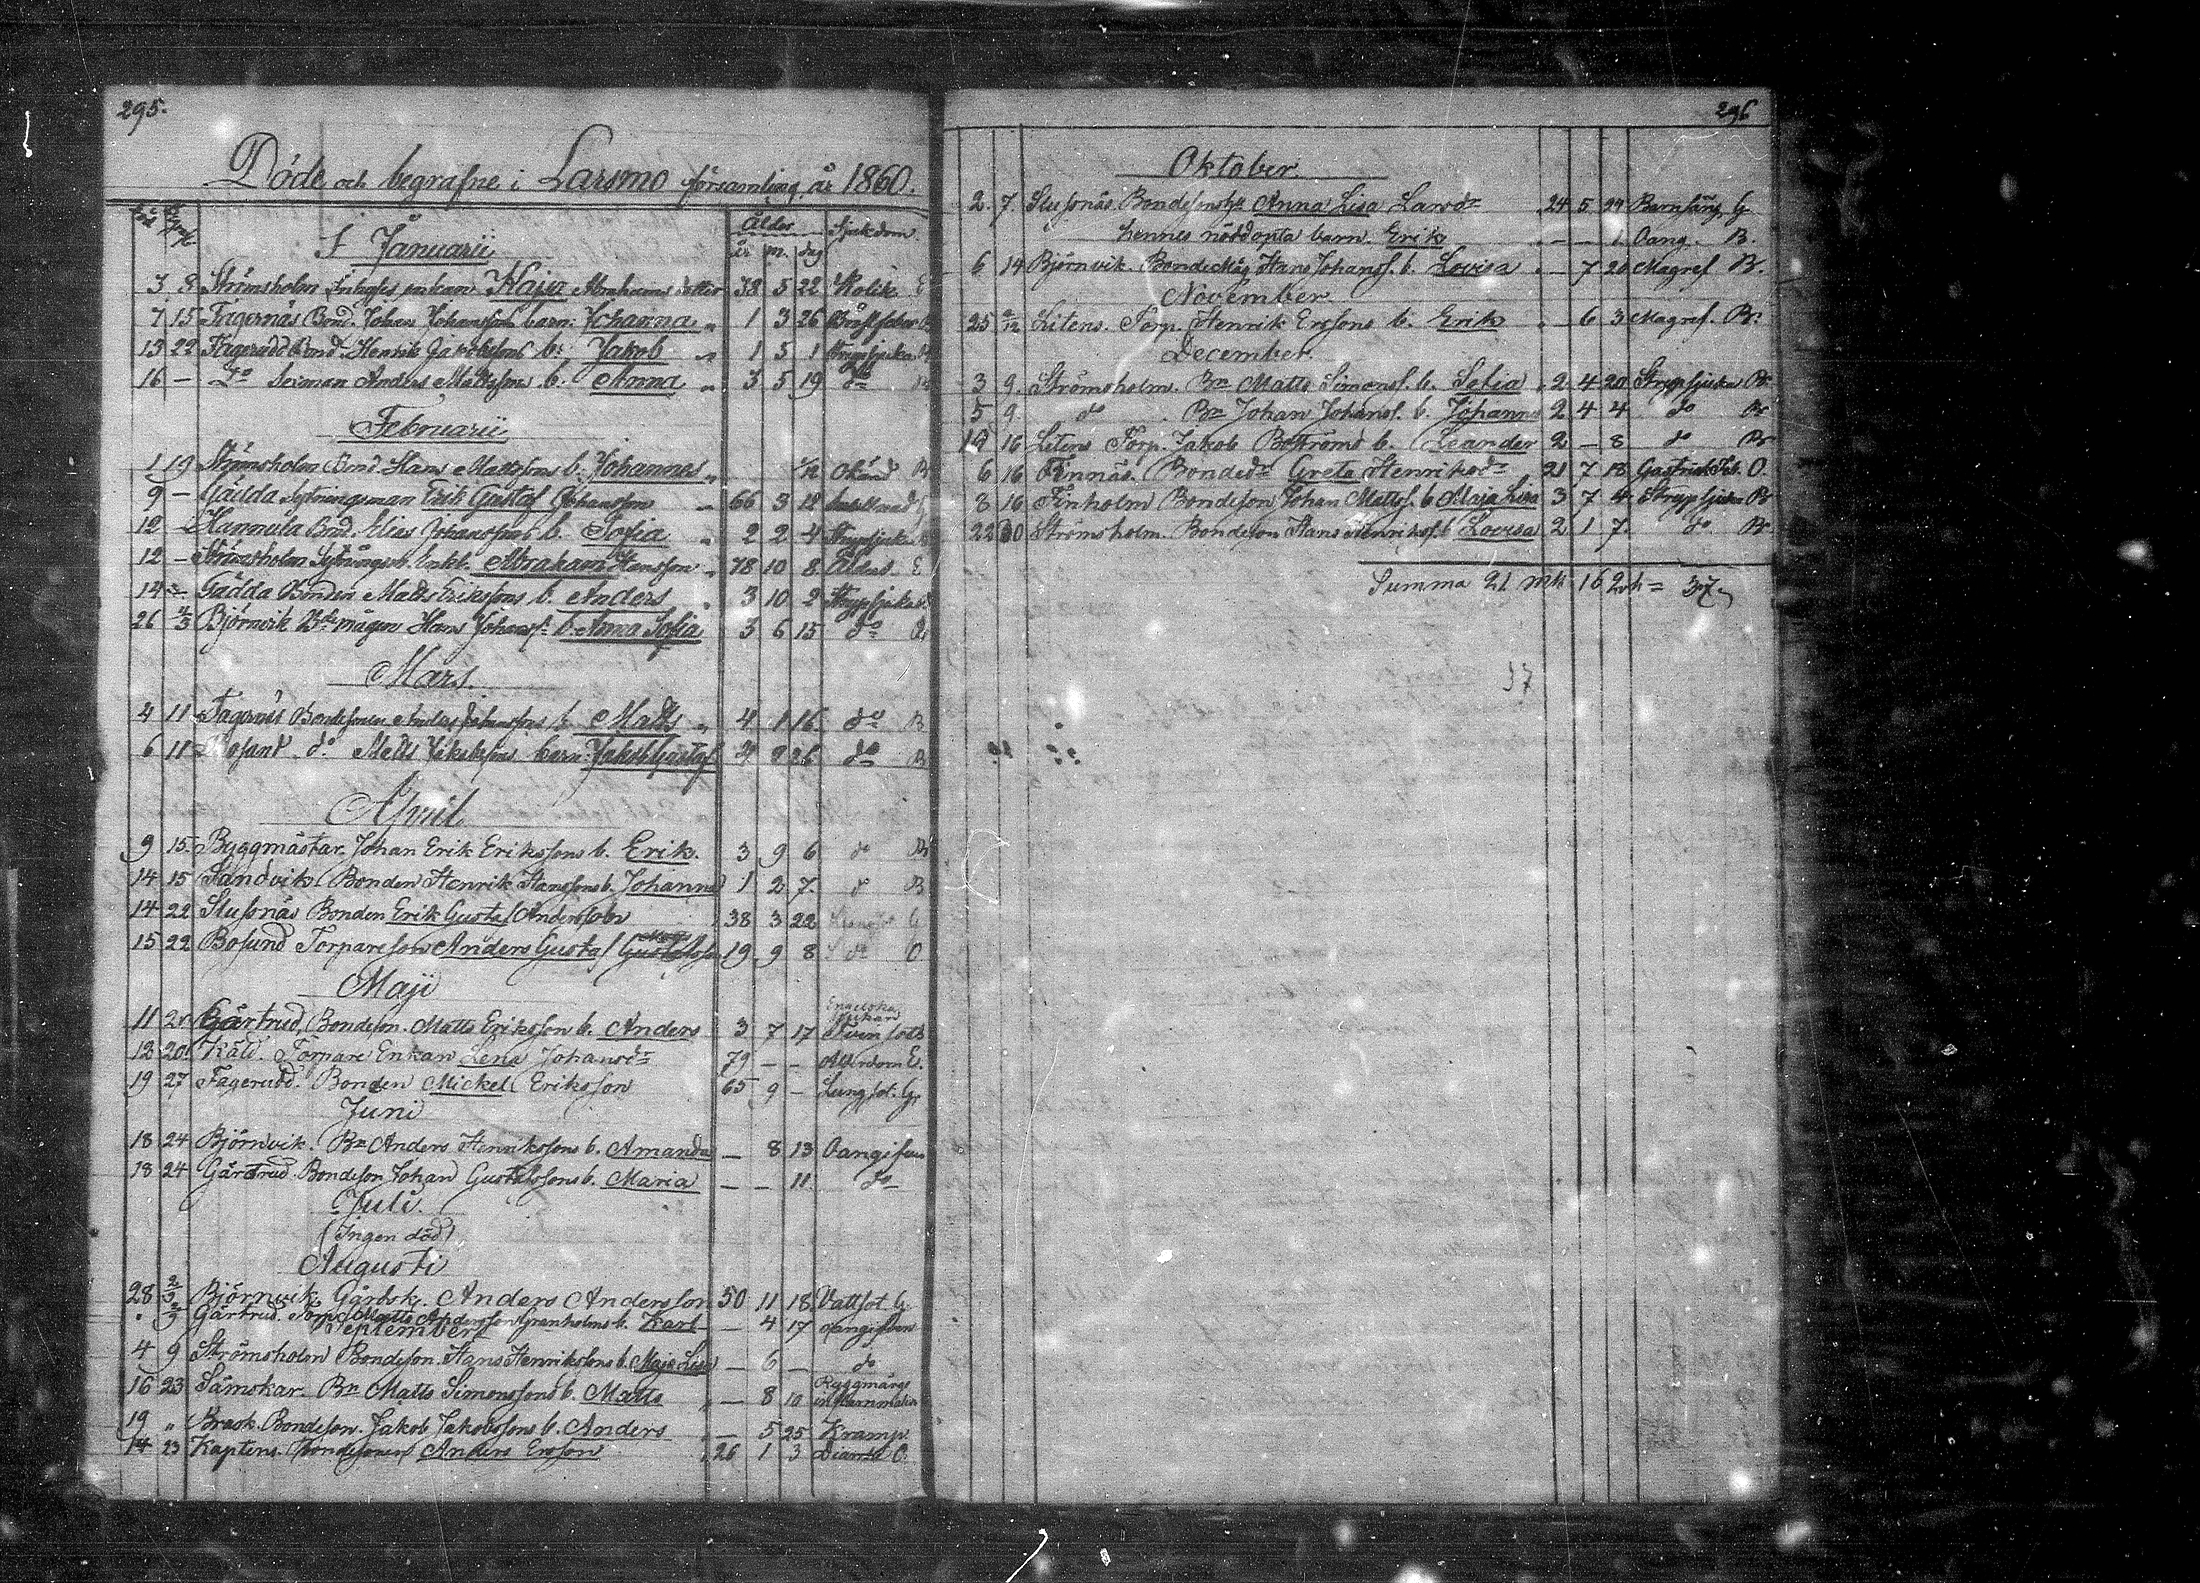 295.
Döde och begrafne i Larsmo församling år 1860.
Ålder Sjukdom.
I Januarii år m. dag
3 8 Strömsholm Enkan Kajsa Abrahams dotter 38 5 22 Kolik E
7 15 Fagernäs Bond. Johan Johanssons barn Johanna 1 3 26 Bröstfeber B
13 22 Fagerudd Bond. Henrik Jakobssons b. Jakob 1 5 1 Strypsjuka B
16 — Do Anders Mattssons b. Anna 3 5 19 do B
Februarii
1 19 Strömsholm Bond. Hans Mattssons b. Johannes 1/12 Okänd B
9 — Gädda Sytningsman Erik Gustaf Johansson 66 3 12 G
12 — Hannula Bond. Elias Johanssons b. Sofia 2 2 4 Strypsjuka
12 — Strömsholm Sytningsb. Enkl. Abraham Hansson 78 10 8 Ålderd. E
14 — Gädda Bonden Matts Erikssons b. Anders 3 10 2 Strypsjuka
26 4/3 Björnvik Bde mågen Hans Johanss. b. Anna Sofia 3 6 15 do B
Mars.
4 11 Fagernäs Bondesonen Anders Johanssons b. Matts 4 1 16 do B
6 11 Bosund do Matts Jakobssons barn Jakob Gustaf 4 9 26 do B
April
9 15 Byggmästar Johan Erik Erikssons b. Erik. 3 9 6 do B
14 15 Sandvik Bonden Henrik Hanssons b. Johanna 1 2 7. do B
14 22 Slussnäs Bonden Erik Gustaf Andersson 38 3 22 G
15 22 Bosund Torpareson Anders Gustaf Gustafsson 19 9 8 do O
Maji
11 20 Gärtrud, Bondeson. Matts Erikssons b. Anders 3 7 17 Engelska sjukan Tvinsot B
12 20 Käld. Torpare Enkan Lena Johansdr 79 — — Ålderdom E.
19 27 Fagerudd. Bonden Mickel Eriksson 65 9 — Lungsot. G.
Juni
18 24 Björnvik. Bn Anders Henrikssons b. Amanda — 8 13 Oangifven
18 24 Gärtrud. Bondeson Johan Gustafssons b. Maria — — 11 do
Juli.
(Ingen död)
Augusti
28 2/9 Björnvik Gårbok. Anders Andersson 50 11 18 Vattsot G.
" 2/9 Gärtrud. Torp. Matts Andersson Granholms b. Karl — 4 17 Oangifven
September
4 9 Strömsholm Bondeson. Hans Henrikssons b. Maja Lisa — 6 — do
16 23 Sämskar Bn Matts Simonssons b. Matts — 8 10 Ryggmärgs inflammation
19 " Brask. Bondeson. Jakob Jakobssons b. Anders — 5 25 Kramp
14 23 Kaptens. Bondesonen Anders Ersson 26 1 3 Diarré O.
296
Oktober
2. 7. Slussnäs. Bondesonshu Anna Lisa Larsdr 24 5 29 Barnsäng G
hennes nöddöpta barn. Erik — — 1 Oang. B.
6 14 Björnvik. Bondemåg Hans Johanss. b. Lovisa — 7 20 Magref B.
November
25 2/12 Litens. Torp. Henrik Erssons b. Erik — 6 3 Magref. Br.
December
3 9. Strömsholm. Bn Matts Simonss. b. Sofia 2 4 20 Strypsjuka Br
5 9. do Bn Johan Johanss. b. Johanna 2 4 4 do Br
10 16 Litens Torp. Jakob Boströms b. Leander 2 — 8 do Br
6 16 Finnäs. Bondedr Greta Henriksdr 21 7 18 Gastrisk Feb. O.
8 16 Finholm Bondeson Johan Mattss. b. Maja Lisa 3 7 4 Strypsjukan Br
22 30 Strömsholm. Bondeson Hans Henrikss. b Lovisa 2 1 7. do. Br
Summa 21 mk 16 2k = 37
37